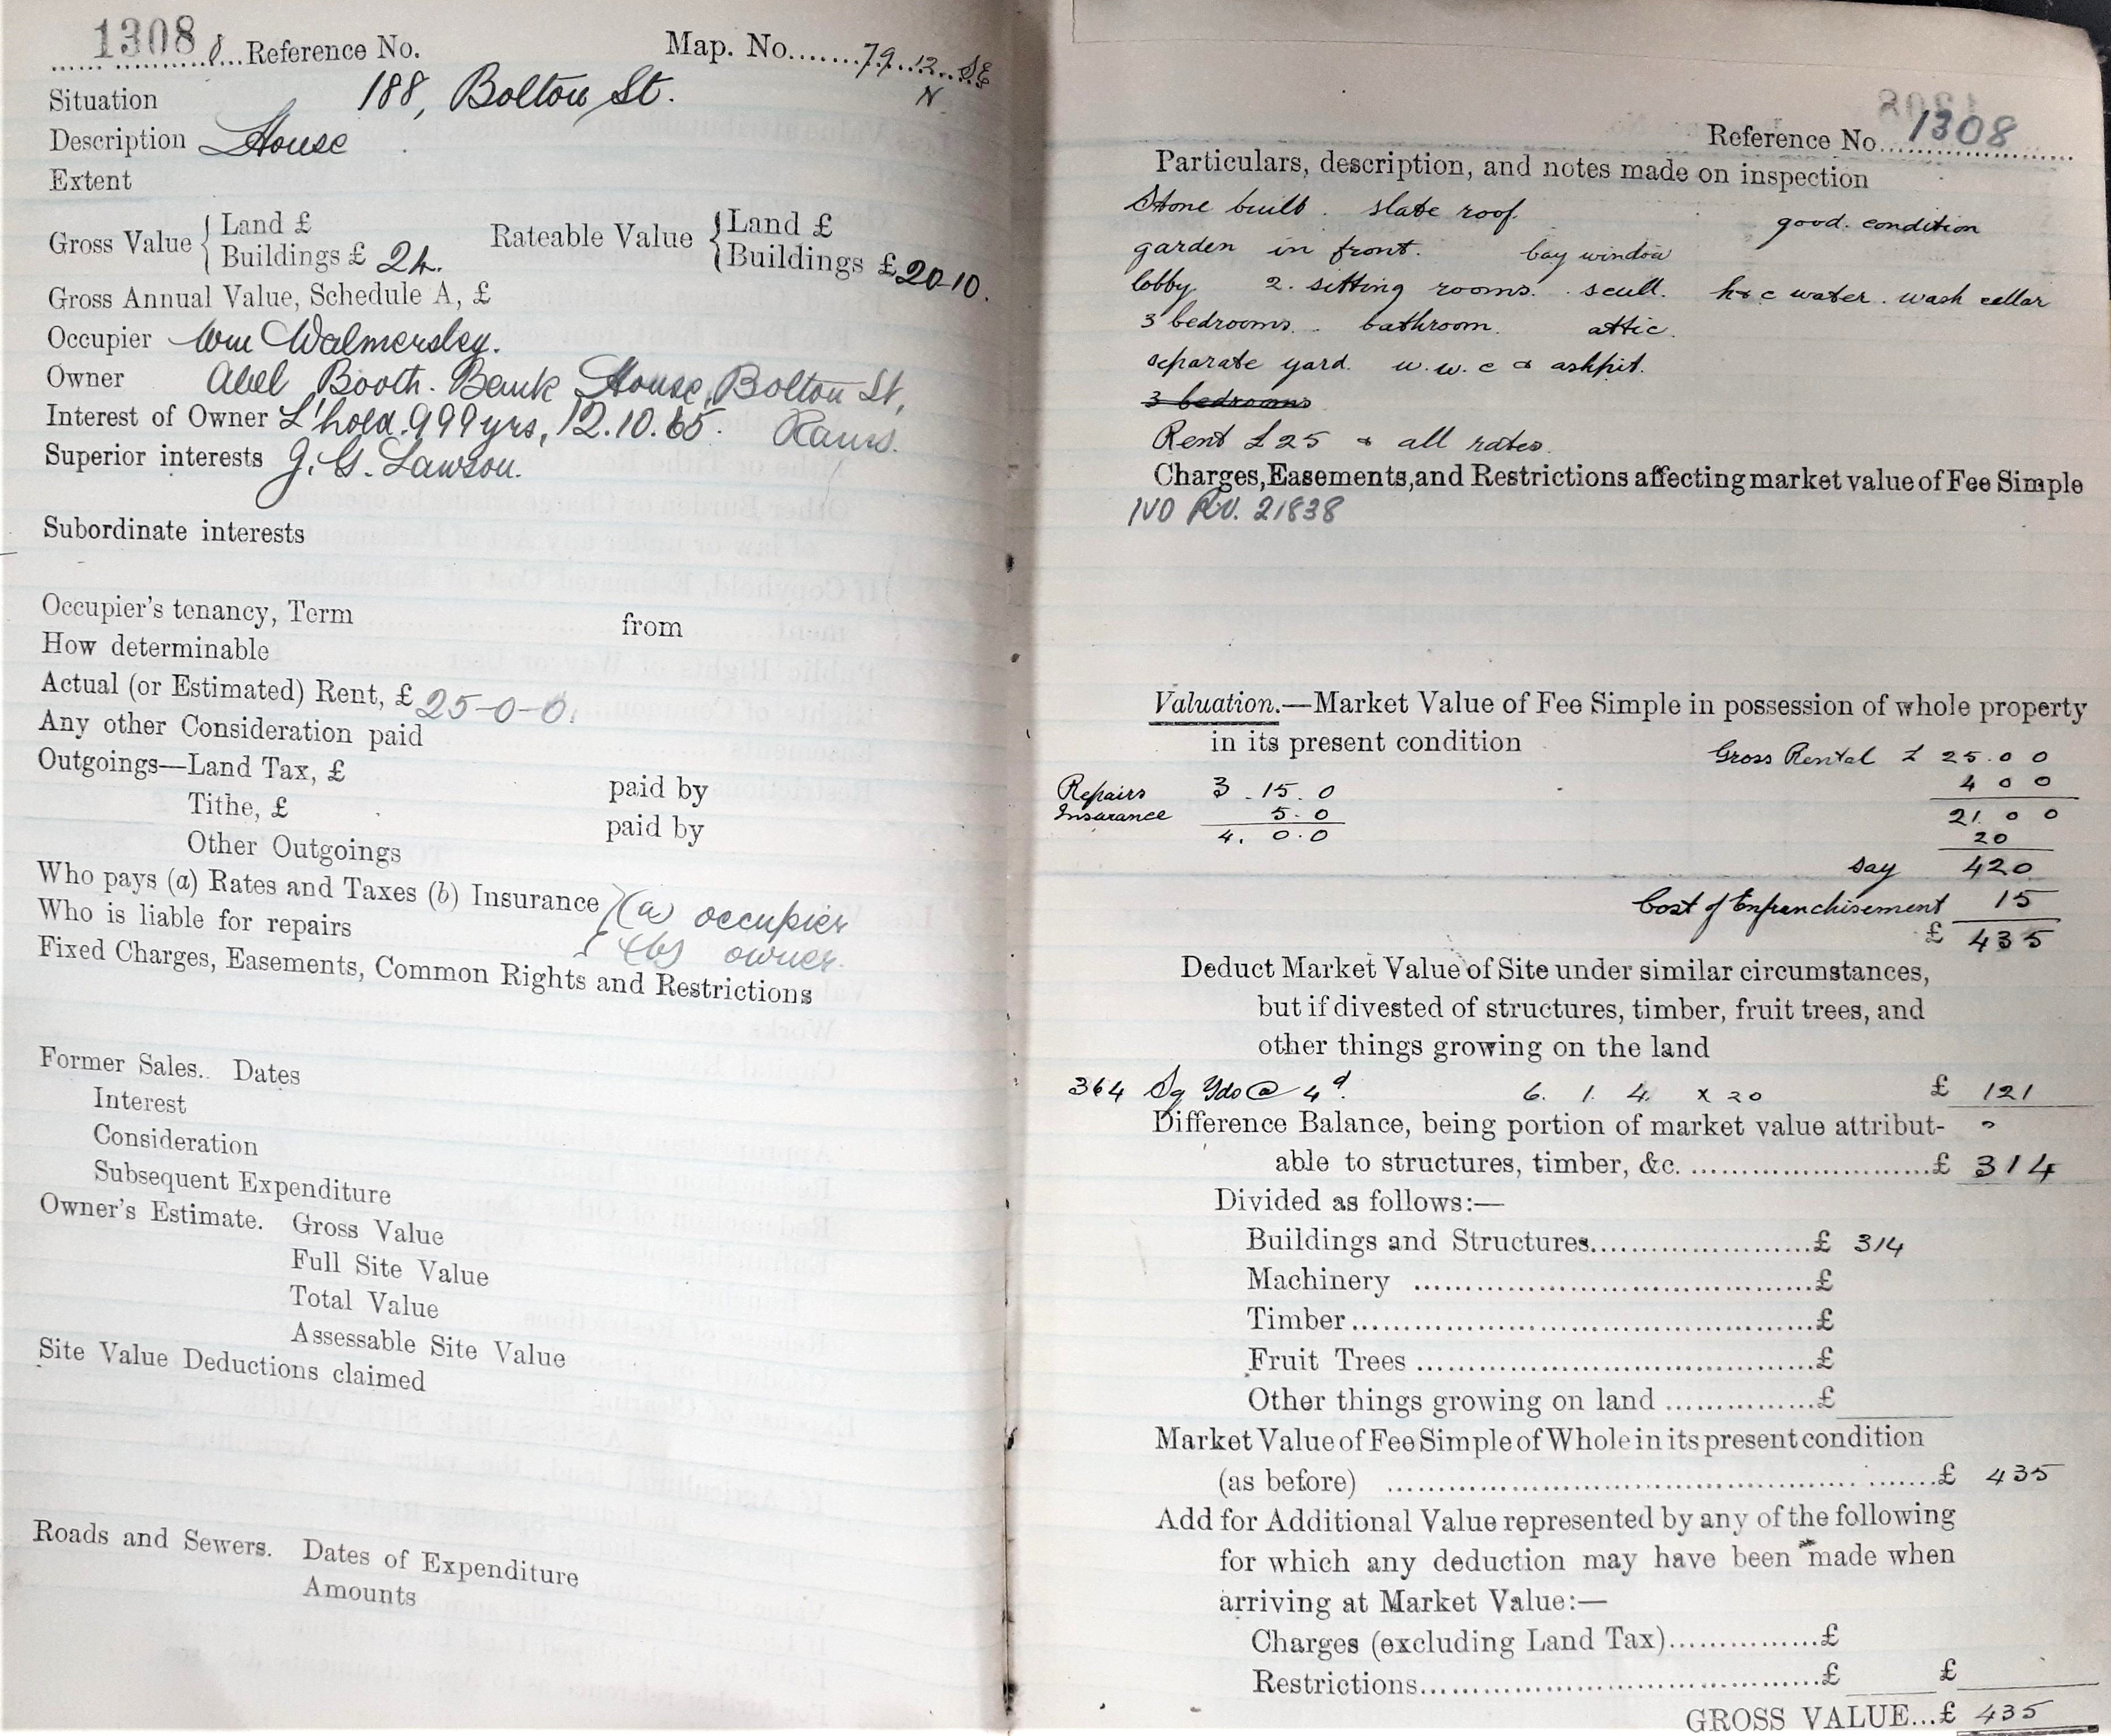 1308 Reference No. Map. No. 79.12. SE
N
Situation 188, Bolton St.
Description House
Extent
Gross Value { Land £ Rateable Value { Land £
Buildings £ 24. Buildings £ 20-10.
Gross Annual Value, Schedule A, £
Occupier Wm Walmersley.
Owner Abel Booth. Bank House, Bolton St,
Interest of Owner L'hold. 999 yrs, 12.10.65. Rams.
Superior interests J. G. Lawson.
Subordinate interests
Occupier's tenancy, Term from
How determinable
Actual (or Estimated) Rent, £ 25-0-0.
Any other Consideration paid
Outgoings—Land Tax, £ paid by
Tithe, £ paid by
Other Outgoings
Who pays (a) Rates and Taxes (b) Insurance } (a) occupier
Who is liable for repairs (b) owner.
Fixed Charges, Easements, Common Rights and Restrictions
Former Sales. Dates
Interest
Consideration
Subsequent Expenditure
Owner's Estimate. Gross Value
Full Site Value
Total Value
Assessable Site Value
Site Value Deductions claimed
Roads and Sewers. Dates of Expenditure
Amounts
Reference No. 1308
Particulars, description, and notes made on inspection
Stone built. slate roof. good. condition
garden in front. bay window
lobby. 2. sitting rooms. scull. h & c water. wash cellar
3 bedrooms. bathroom. attic.
separate yard. w.w.c & ashpit.
3 bedrooms
Rent £25 & all rates.
Charges, Easements, and Restrictions affecting market value of Fee Simple
IVD RV. 21838
Valuation.—Market Value of Fee Simple in possession of whole property
in its present condition
Gross Rental £ 25.0 0
Repairs 3.15.0 4 0 0
Insurance 5.0 21. 0 0
4. 0.0 20
say 420
Cost of Enfranchisement 15
£ 435
Deduct Market Value of Site under similar circumstances,
but if divested of structures, timber, fruit trees, and
other things growing on the land
364 Sq Yds @ 4d. 6. 1. 4. x 20 £ 121
Difference Balance, being portion of market value attribut-
able to structures, timber, &c. £ 314
Divided as follows:—
Buildings and Structures £ 314
Machinery £
Timber £
Fruit Trees £
Other things growing on land £
Market Value of Fee Simple of Whole in its present condition
(as before) £ 435
Add for Additional Value represented by any of the following
for which any deduction may have been made when
arriving at Market Value:—
Charges (excluding Land Tax) £
Restrictions £ £
GROSS VALUE...£ 435